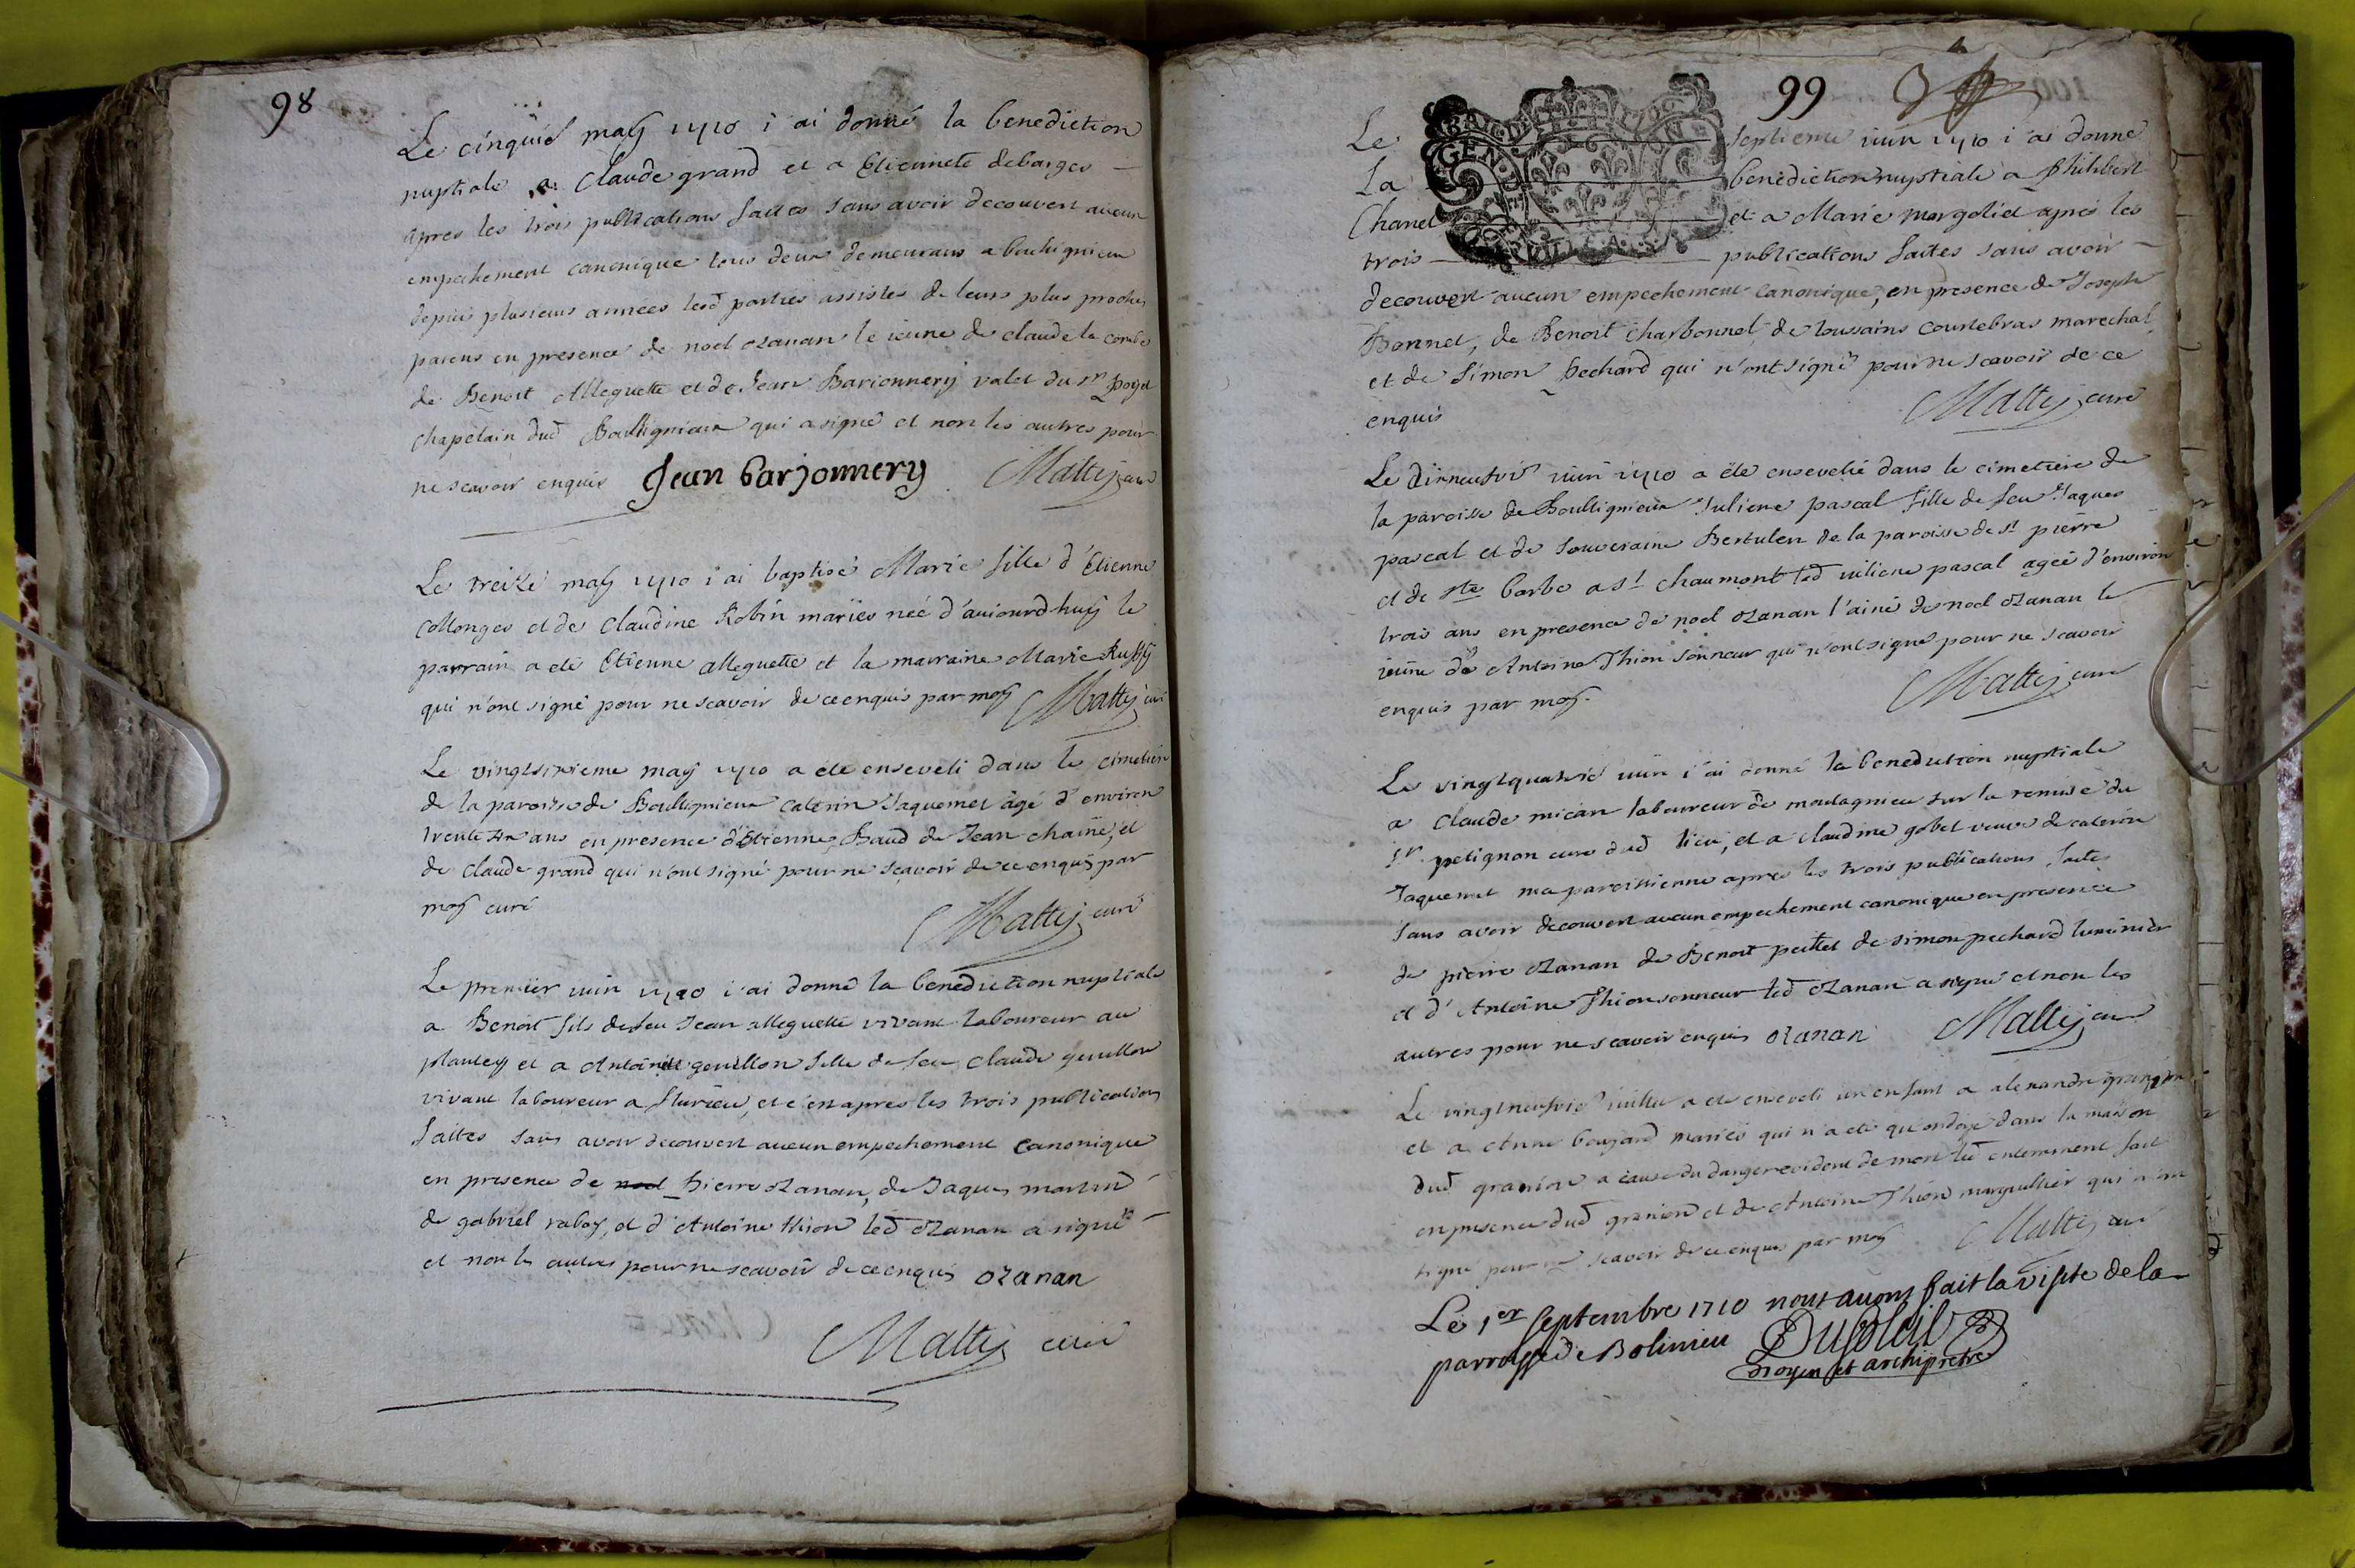 98
Le cinquie may 1710 i ai donné la benediction
nuptiale a Claude grand et a Etiennete debarges
apres les trois publications faites sans avoir decouvert aucun
empechement canonique tous deux demeurans a boulignieux
depuis plusieurs années lesd parties assistes de leurs plus proches
parens en presence de noel ozanan le ieune de claude la combe
de Benoit Alleguette et de Jean Barionnery valet du sr poyet
chapelain dud Boulignieux qui a signé et non les autres pour
ne scavoir enquis Jean barjonnery Mattij curé
Le treize may 1710 i ai baptisé Marie fille d'Etienne
Collonges et de Claudine Robin mariés née d'auiourdhuy le
parrain a eté Etienne alleguette et la marraine Marie Ruffy
qui n'ont signé pour ne scavoir de ce enquis par moy Mattij curé
Le vingtsixieme may 1710 a eté enseveli dans le cimetiere
de la paroisse de Boulignieux Caterin Jaquemet agé d'environ
trente ans en presence d'Etienne Baud de Jean chaine, et
de Claude grand qui n'ont signé pour ne scavoir de ce enquis par
moy curé Mattij curé
Le premier iuin 1710 i'ai donné la benediction nuptiale
a Benoit fils de feu Jean alleguette vivant laboureur au
plantey et a Antoinette genillon fille de feu Claude genillon
vivant laboureur a flurieu, et c'est apres les trois publications
faites sans avoir decouvert aucun empechement canonique
en presence de noel Pierre Ozanan, de Jaques martin
de gabriel rabay, et d'Antoine thion led Ozanan a signé
et non les autres pour ne scavoir de ce enquis ozanan
Mattij curé
99
Le septieme iuin 1710 i'ai donne
La benediction nuptiale a Philibert
Chanel et a Marie margoliet apres les
trois publications faites sans avoir
decouvert aucun empechement canonique, en presence de Joseph
Bonnet, de Benoit Charbonnet, de toussains courtebras marechal
et de Simon pechard qui n'ont signé pour ne scavoir de ce
enquis Mattij curé
Le dixneufvie iuin 1710 a eté ensevelie dans le cimetiere de
la paroisse de Boullignieux Juliene pascal fille de feu Jaques
pascal et de souveraine Bertulen de la paroisse de st pierre
et de ste barbe a st chaumont led iuliene pascal agée d'environ
trois ans en presence de noel ozanan l'ainé de noel ozanan le
ieune de Antoine Thion sonneur qui n'ont signé pour ne scavoir
enquis par moy. Mattij curé
Le vingtquatrie iuin i'ai donné la benediction nuptiale
a Claude mican laboureur de montagnieu sur la remise du
sr. petignon curé dud lieu, et a claudine gobet veuve de caterin
Jaquemet ma paroissienne apres les trois publications faites
sans avoir decouvert aucun empechement canonique en presence
de pierre ozanan de Benoit peitel de simon pechard luminier
et d'Antoine Thion sonneur led Ozanan a signé et non les
autres pour ne scavoir enquis ozanan Mattij curé
Le vingtneufvie iuillet a eté enseveli un enfant a alexandre
et a Anne boujard mariés qui n'a eté qu'ondoyé dans la maison
dud granion a cause du danger evident de mort led enterrement fait
en presence dud granion et de Antoine Thion marguillier qui n'ont
signé pour ne scavoir de ce enquis par moy Mattij curé
Le 1er septembre 1710 nous avons fait la visite de la
parroisse de Bolinieu Dusoleil
Doyen et archiprêtre